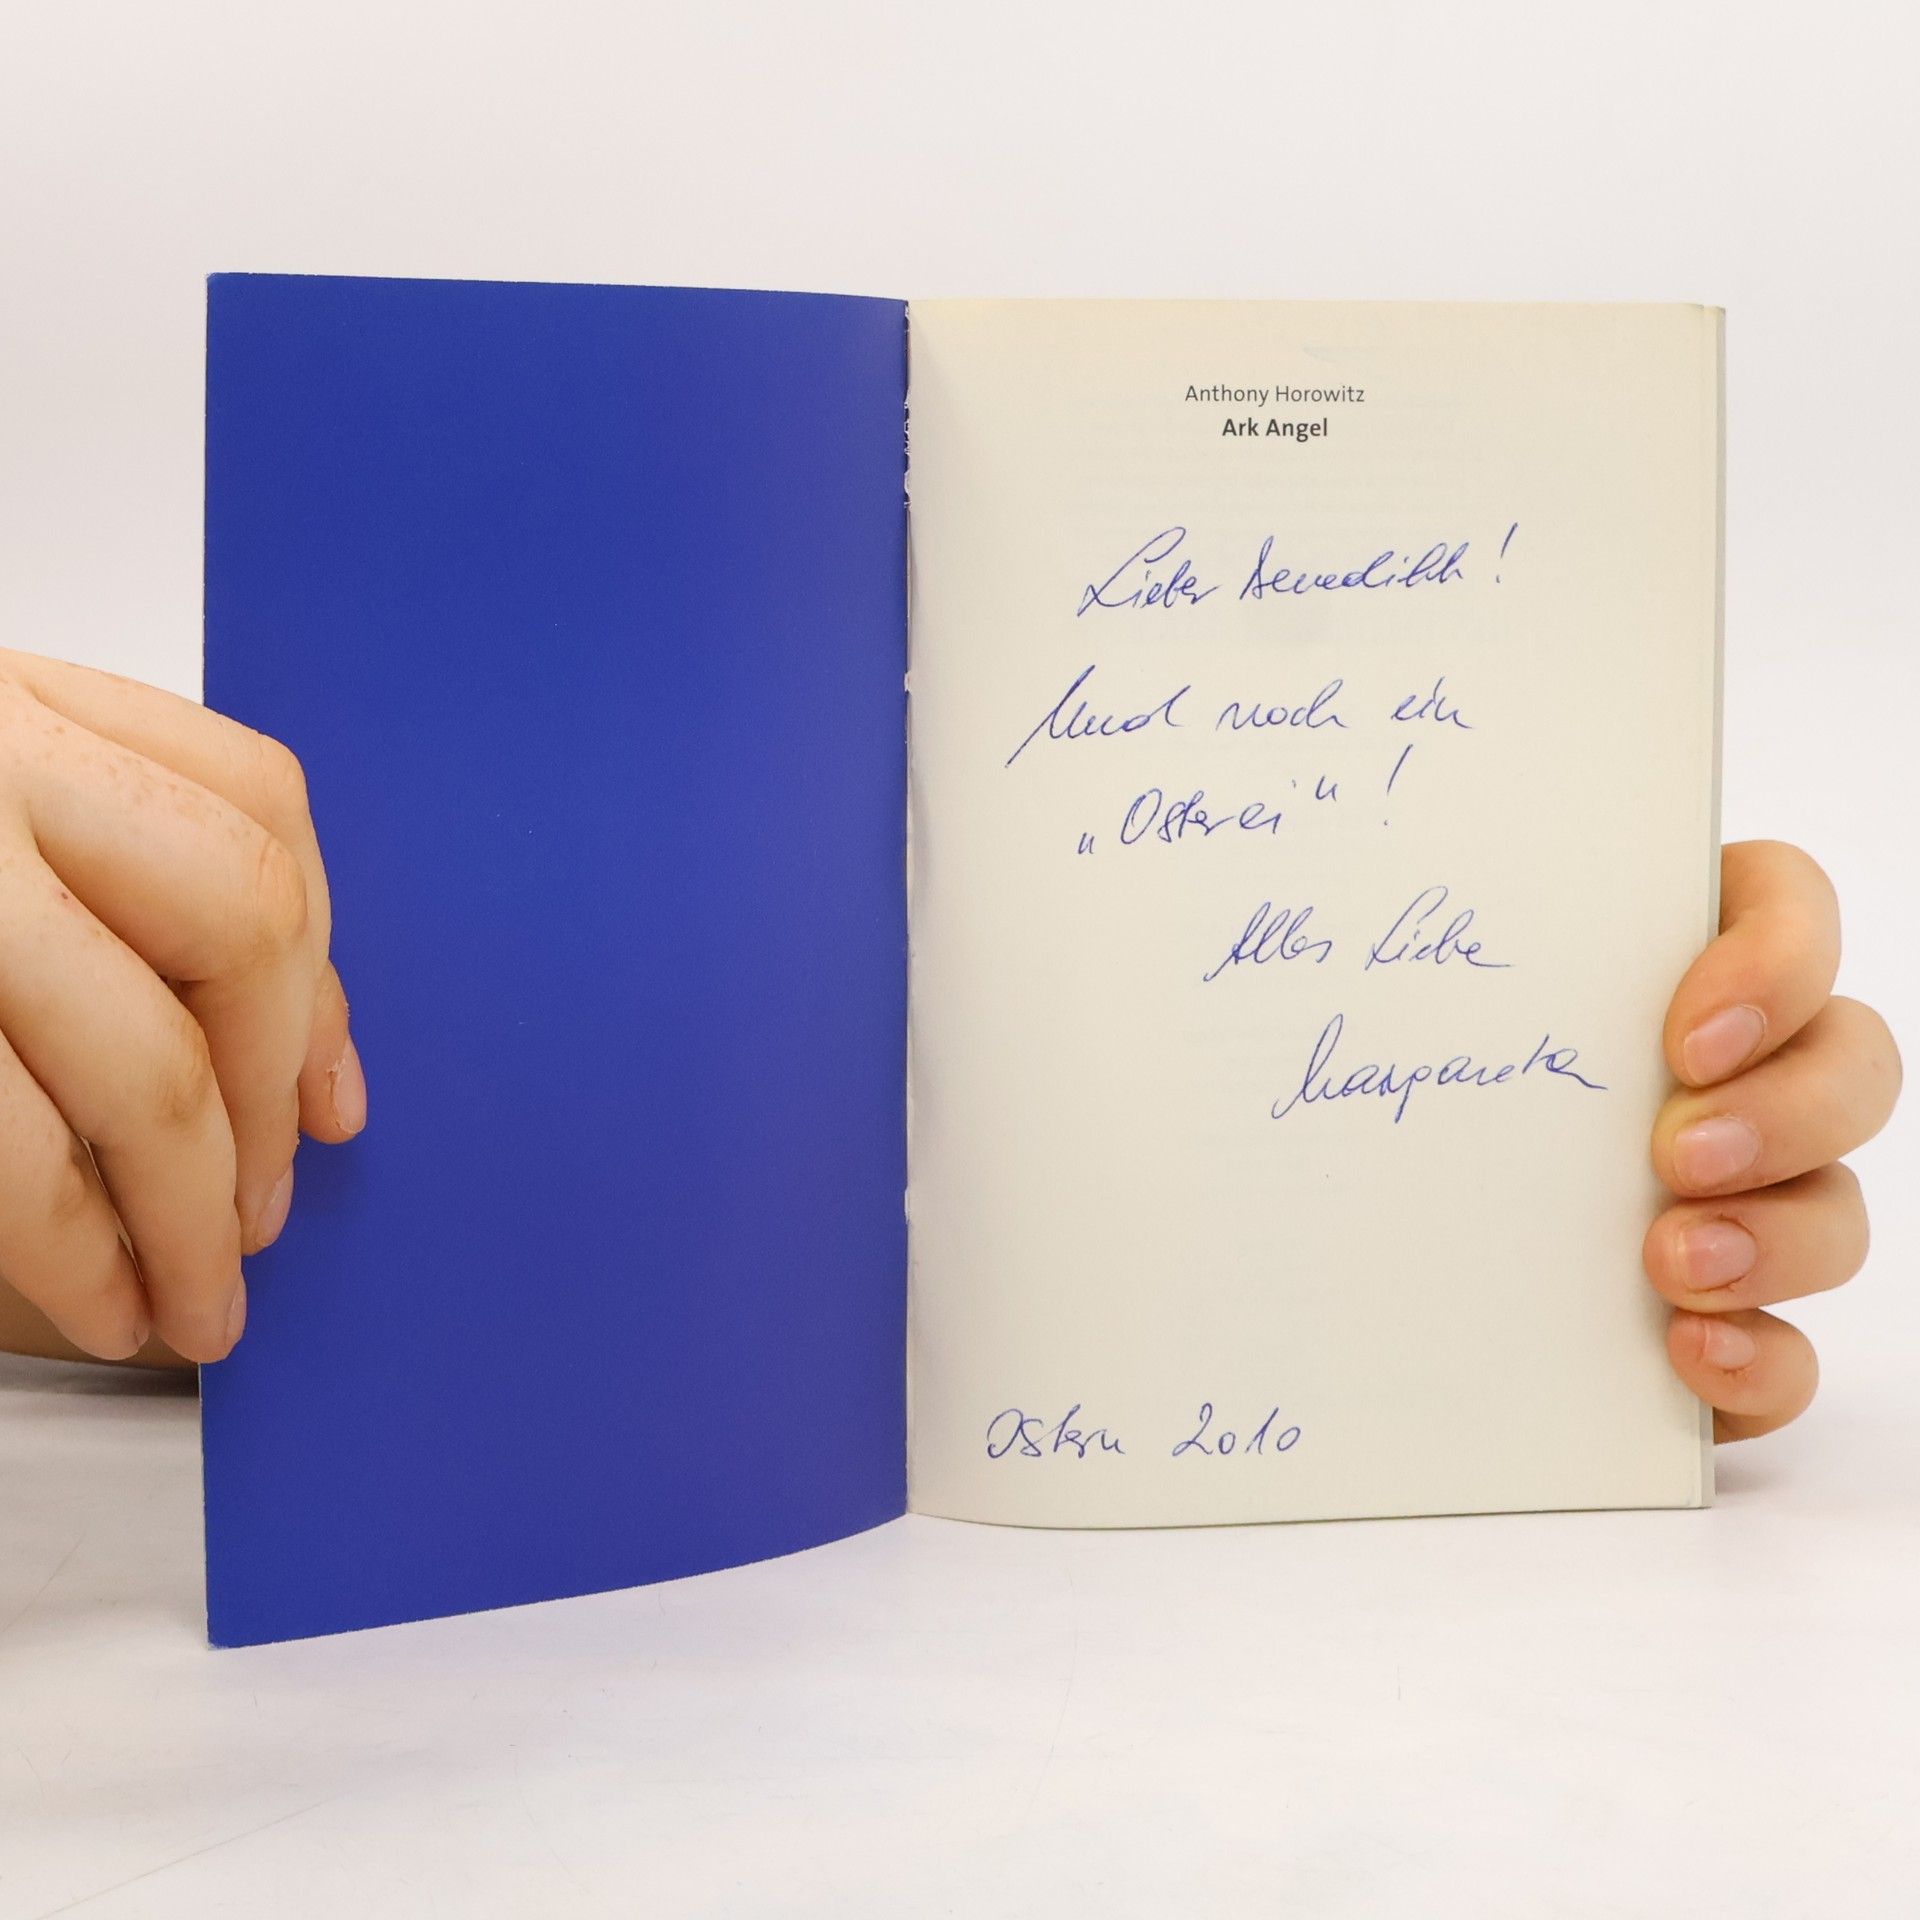 Anthony Horowitz
Ark Angel
Lieber Benedikt!
Und noch ein
„Osterei“!
Alles Liebe
Margareta
Ostern 2010